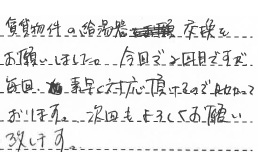 賃貸物件の給湯器 交換を
お願いしました。今回で2回目ですが
毎回、素早く対応頂けるので助かって
おります。次回もよろしくお願い
致します。